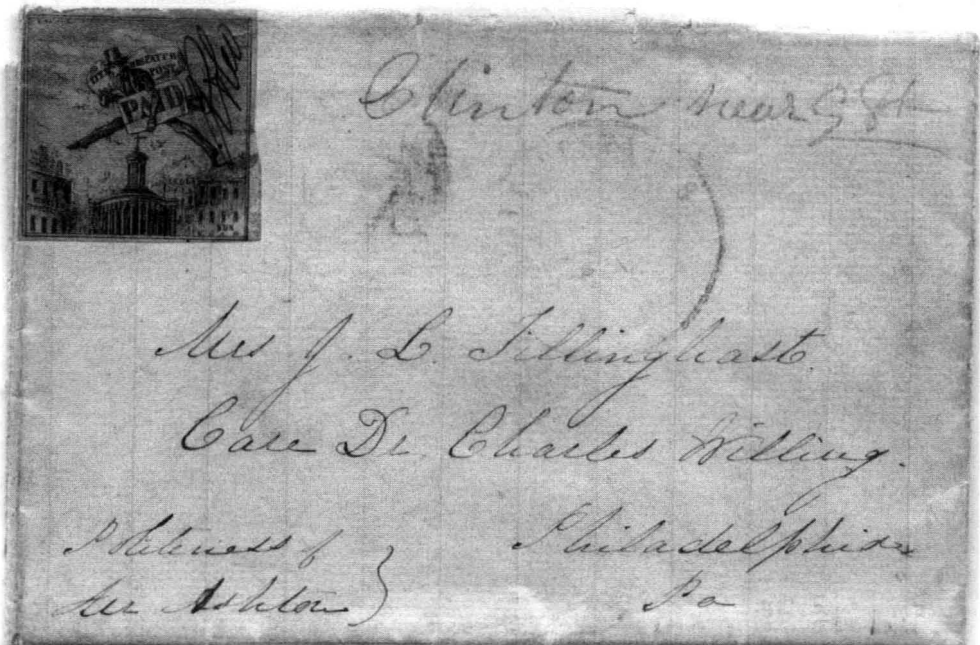 CITY DESPATCH
POST
PAID
Clinton near 9 St
Mrs J. L. Tillinghast.
Care Dr. Charles Willing.
Philadelphia
Pa
Politeness of
Mr Ashton